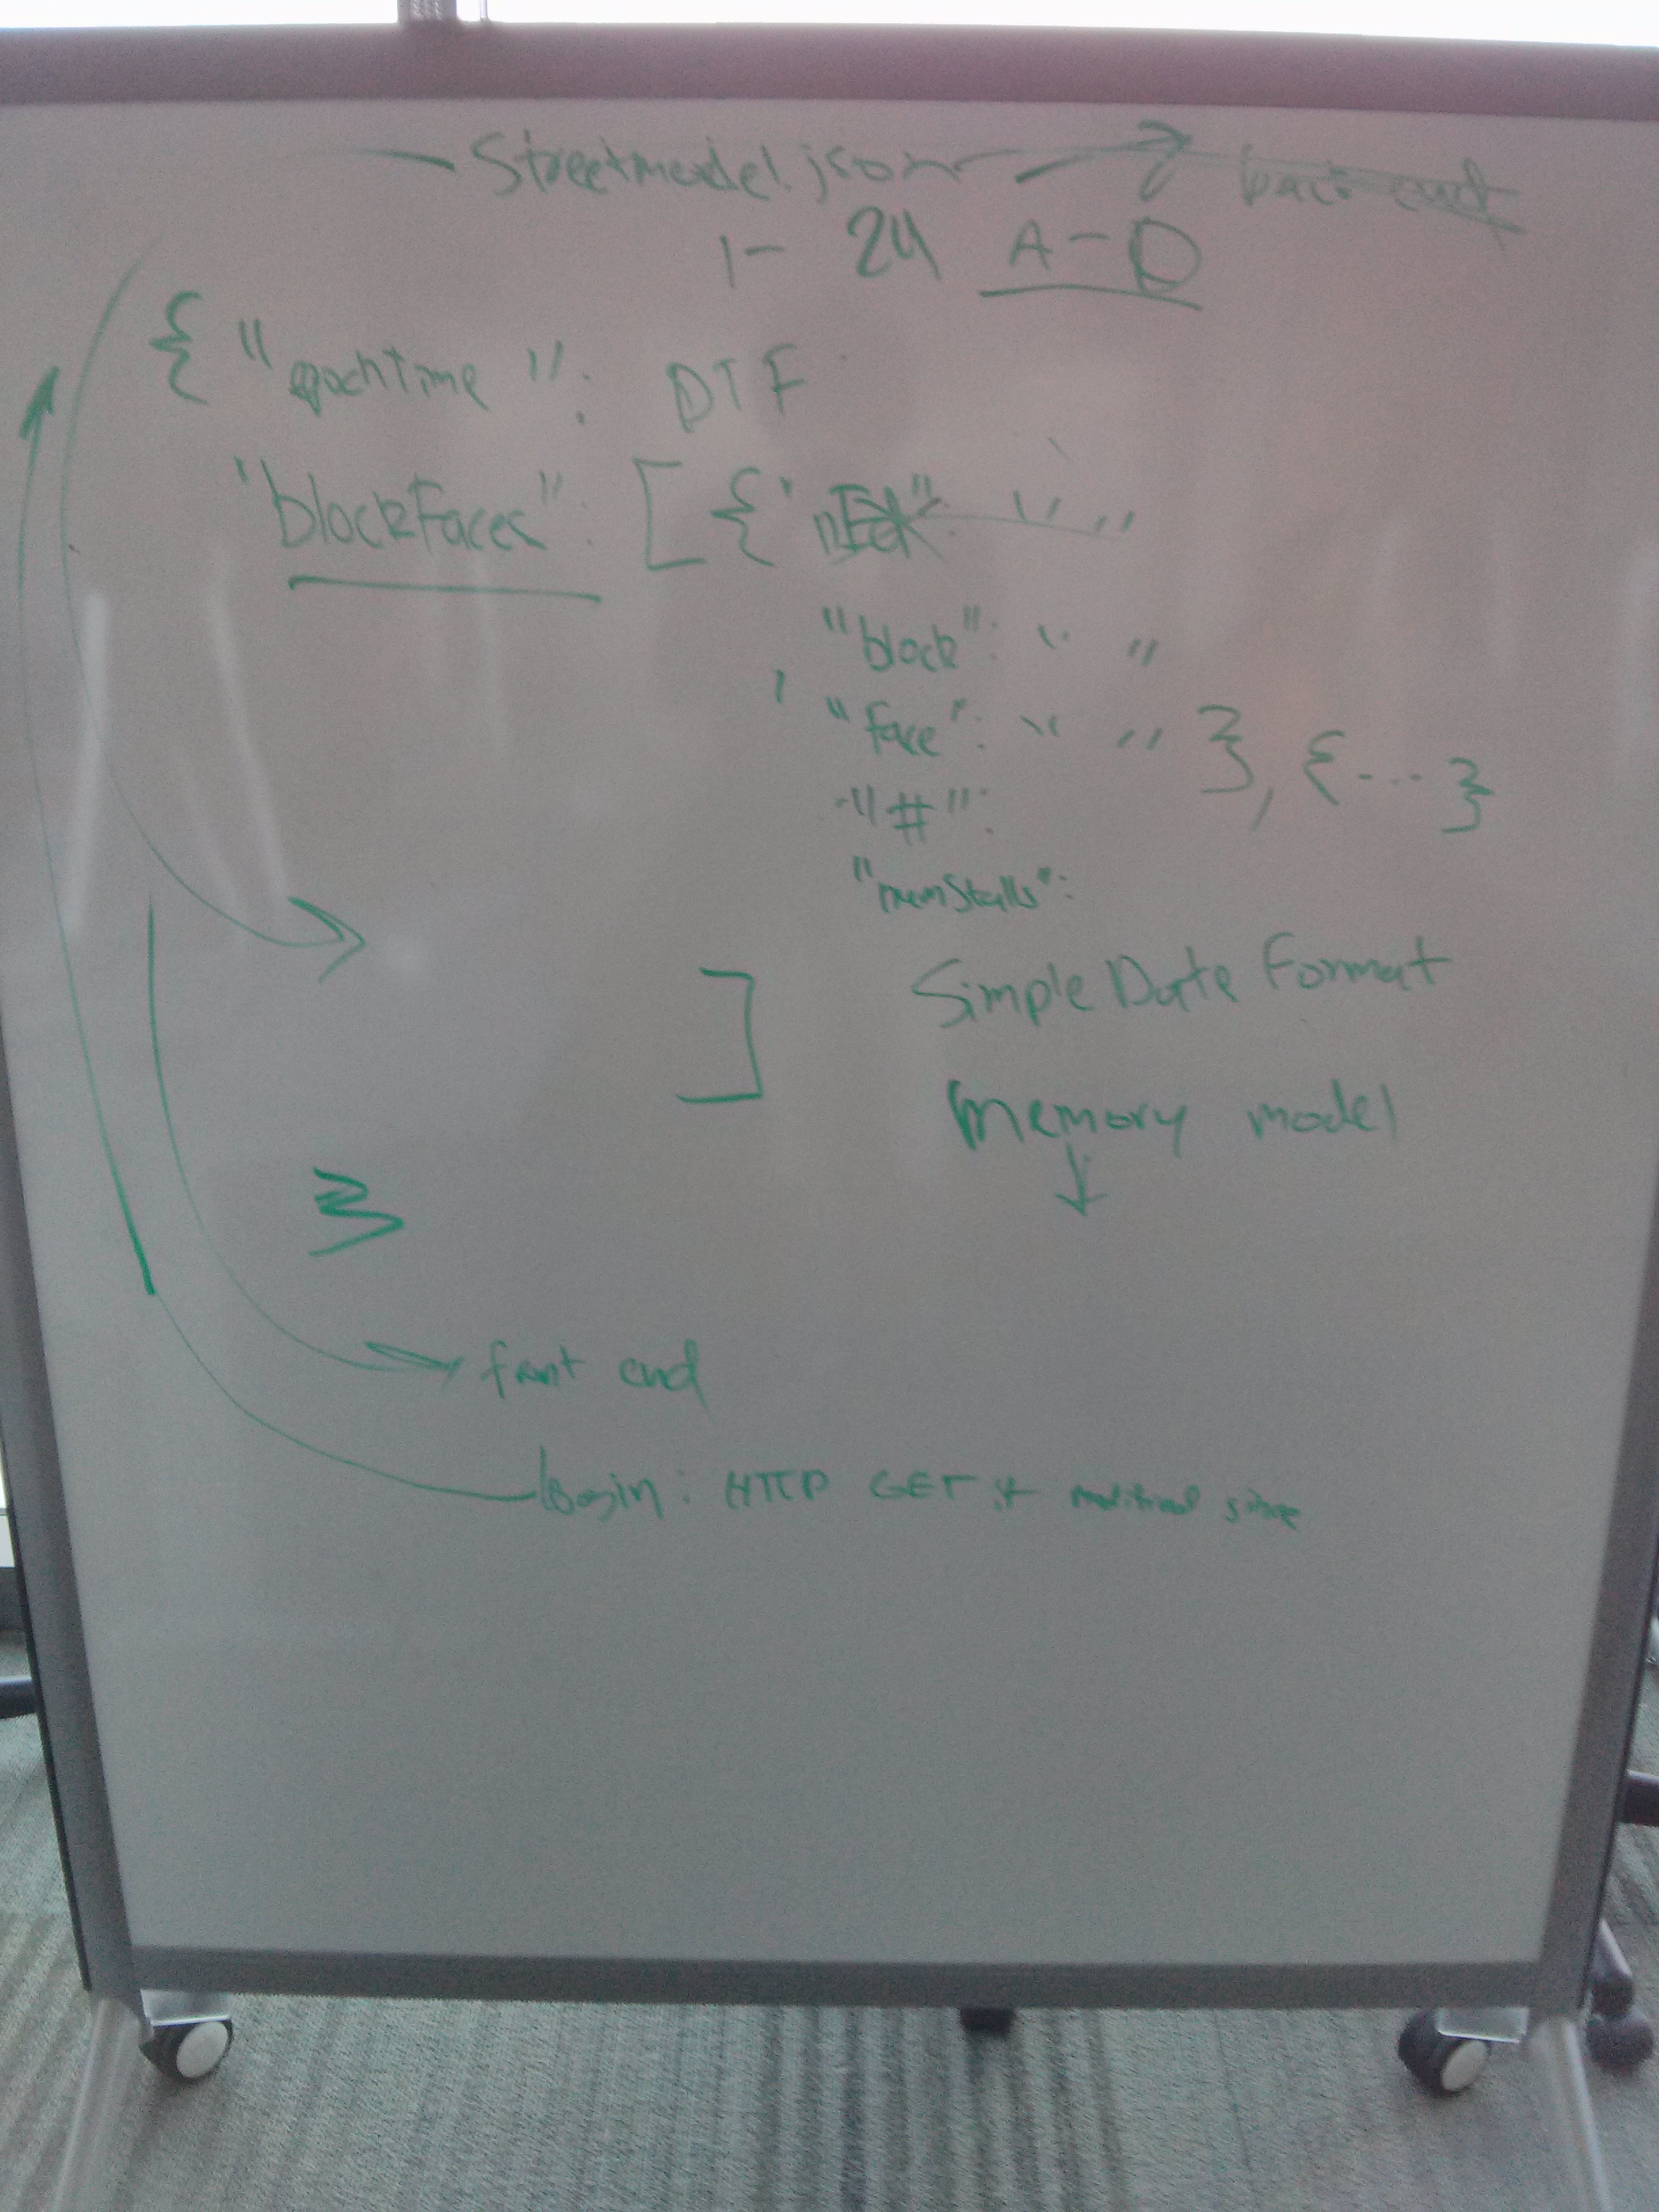 Streetmodel.json back end
1- 24 A-D
{ "epochTime": DTF
"blockFaces": [ { " ": " "
"block": " "
, "face": " " }, { ... }
"#":
"numStalls":
Simple Date Format
]
Memory model
}
front end
login: HTTP GET if modified since